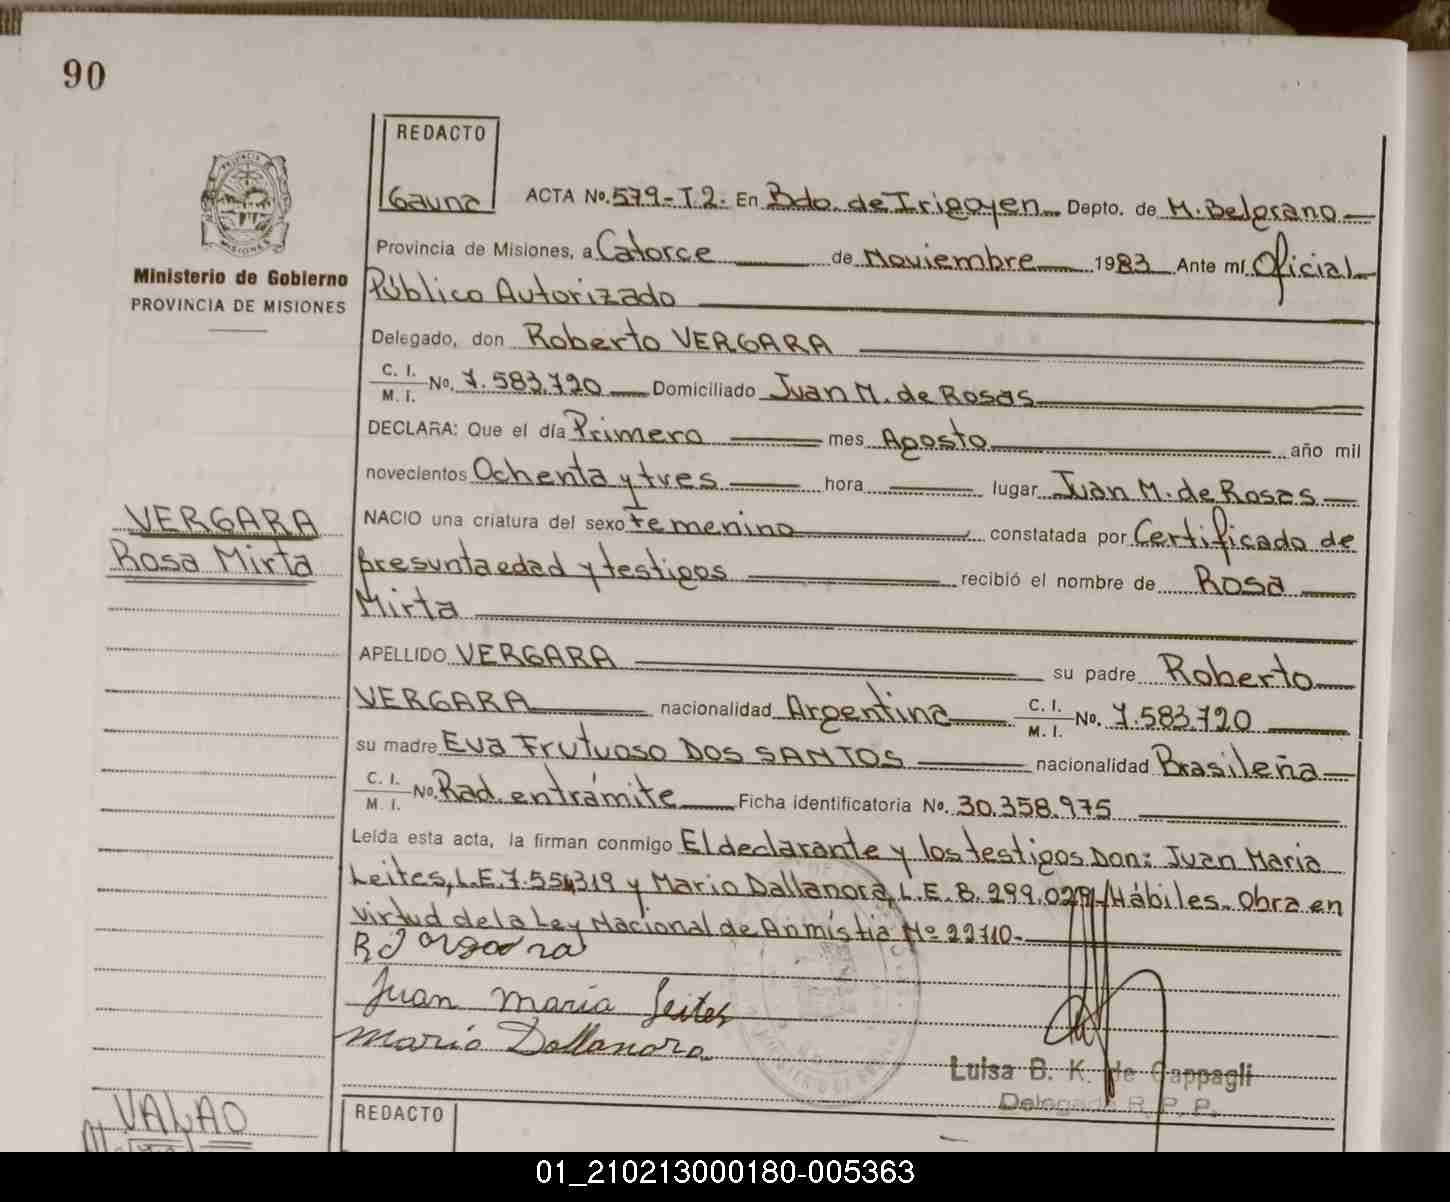 90
REDACTO
Gauna
Ministerio de Gobierno
PROVINCIA DE MISIONES
ACTA No. 579-T.2. En Bdo. de Irigoyen Depto. de M. Belgrano
Provincia de Misiones, a Catorce de Noviembre 1983 Ante mí Oficial
Público Autorizado
Delegado, don Roberto VERGARA
C. I.
M. I. No. 7.583.720 Domiciliado Juan M. de Rosas
DECLARA: Que el día Primero mes Agosto año mil
novecientos Ochenta y tres hora lugar Juan M. de Rosas
VERGARA
Rosa Mirta
NACIO una criatura del sexo femenino constatada por Certificado de
presunta edad y testigos recibió el nombre de Rosa
Mirta
APELLIDO VERGARA su padre Roberto
VERGARA nacionalidad Argentina C. I.
M. I. No. 7.583.720
su madre Eva Frutuoso DOS SANTOS nacionalidad Brasileña
C. I.
M. I. No. Rad. en trámite Ficha identificatoria No. 30.358.975
Leída esta acta, la firman conmigo El declarante y los testigos Don: Juan Maria
Leites, L.E. 7.554319 y Mario Dallanora, L.E. 8.299.029/Hábiles. Obra en
virtud de la Ley Nacional de Anmistia Nº 22710.-
Juan maria Leites
mario Dallanora
Luisa B. K. de Cappagli
Delegada R. P. P.
VALAO
REDACTO
01_210213000180-005363